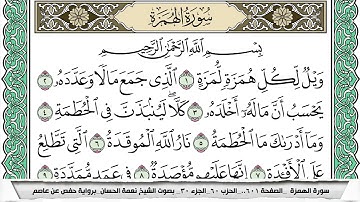 سُورَةُ الهُمَزَةِ
بِسْمِ اللَّهِ الرَّحْمَٰنِ الرَّحِيمِ
وَيْلٌ لِّكُلِّ هُمَزَةٍ لُّمَزَةٍ ١ الَّذِي جَمَعَ مَالًا وَعَدَّدَهُ ٢
يَحْسَبُ أَنَّ مَالَهُ أَخْلَدَهُ ٣ كَلَّا لَيُنبَذَنَّ فِي الْحُطَمَةِ ٤
وَمَا أَدْرَاكَ مَا الْحُطَمَةُ ٥ نَارُ اللَّهِ الْمُوقَدَةُ ٦ الَّتِي تَطَّلِعُ
عَلَى الْأَفْئِدَةِ ٧ إِنَّهَا عَلَيْهِم مُّؤْصَدَةٌ ٨ فِي عَمَدٍ مُّمَدَّدَةٍ ٩
سورة الهمزة _الصفحة ٦٠١.. الحزب ٦٠ _الجزء ٣٠_ بصوت الشيخ نعمة الحسان _برواية حفص عن عاصم